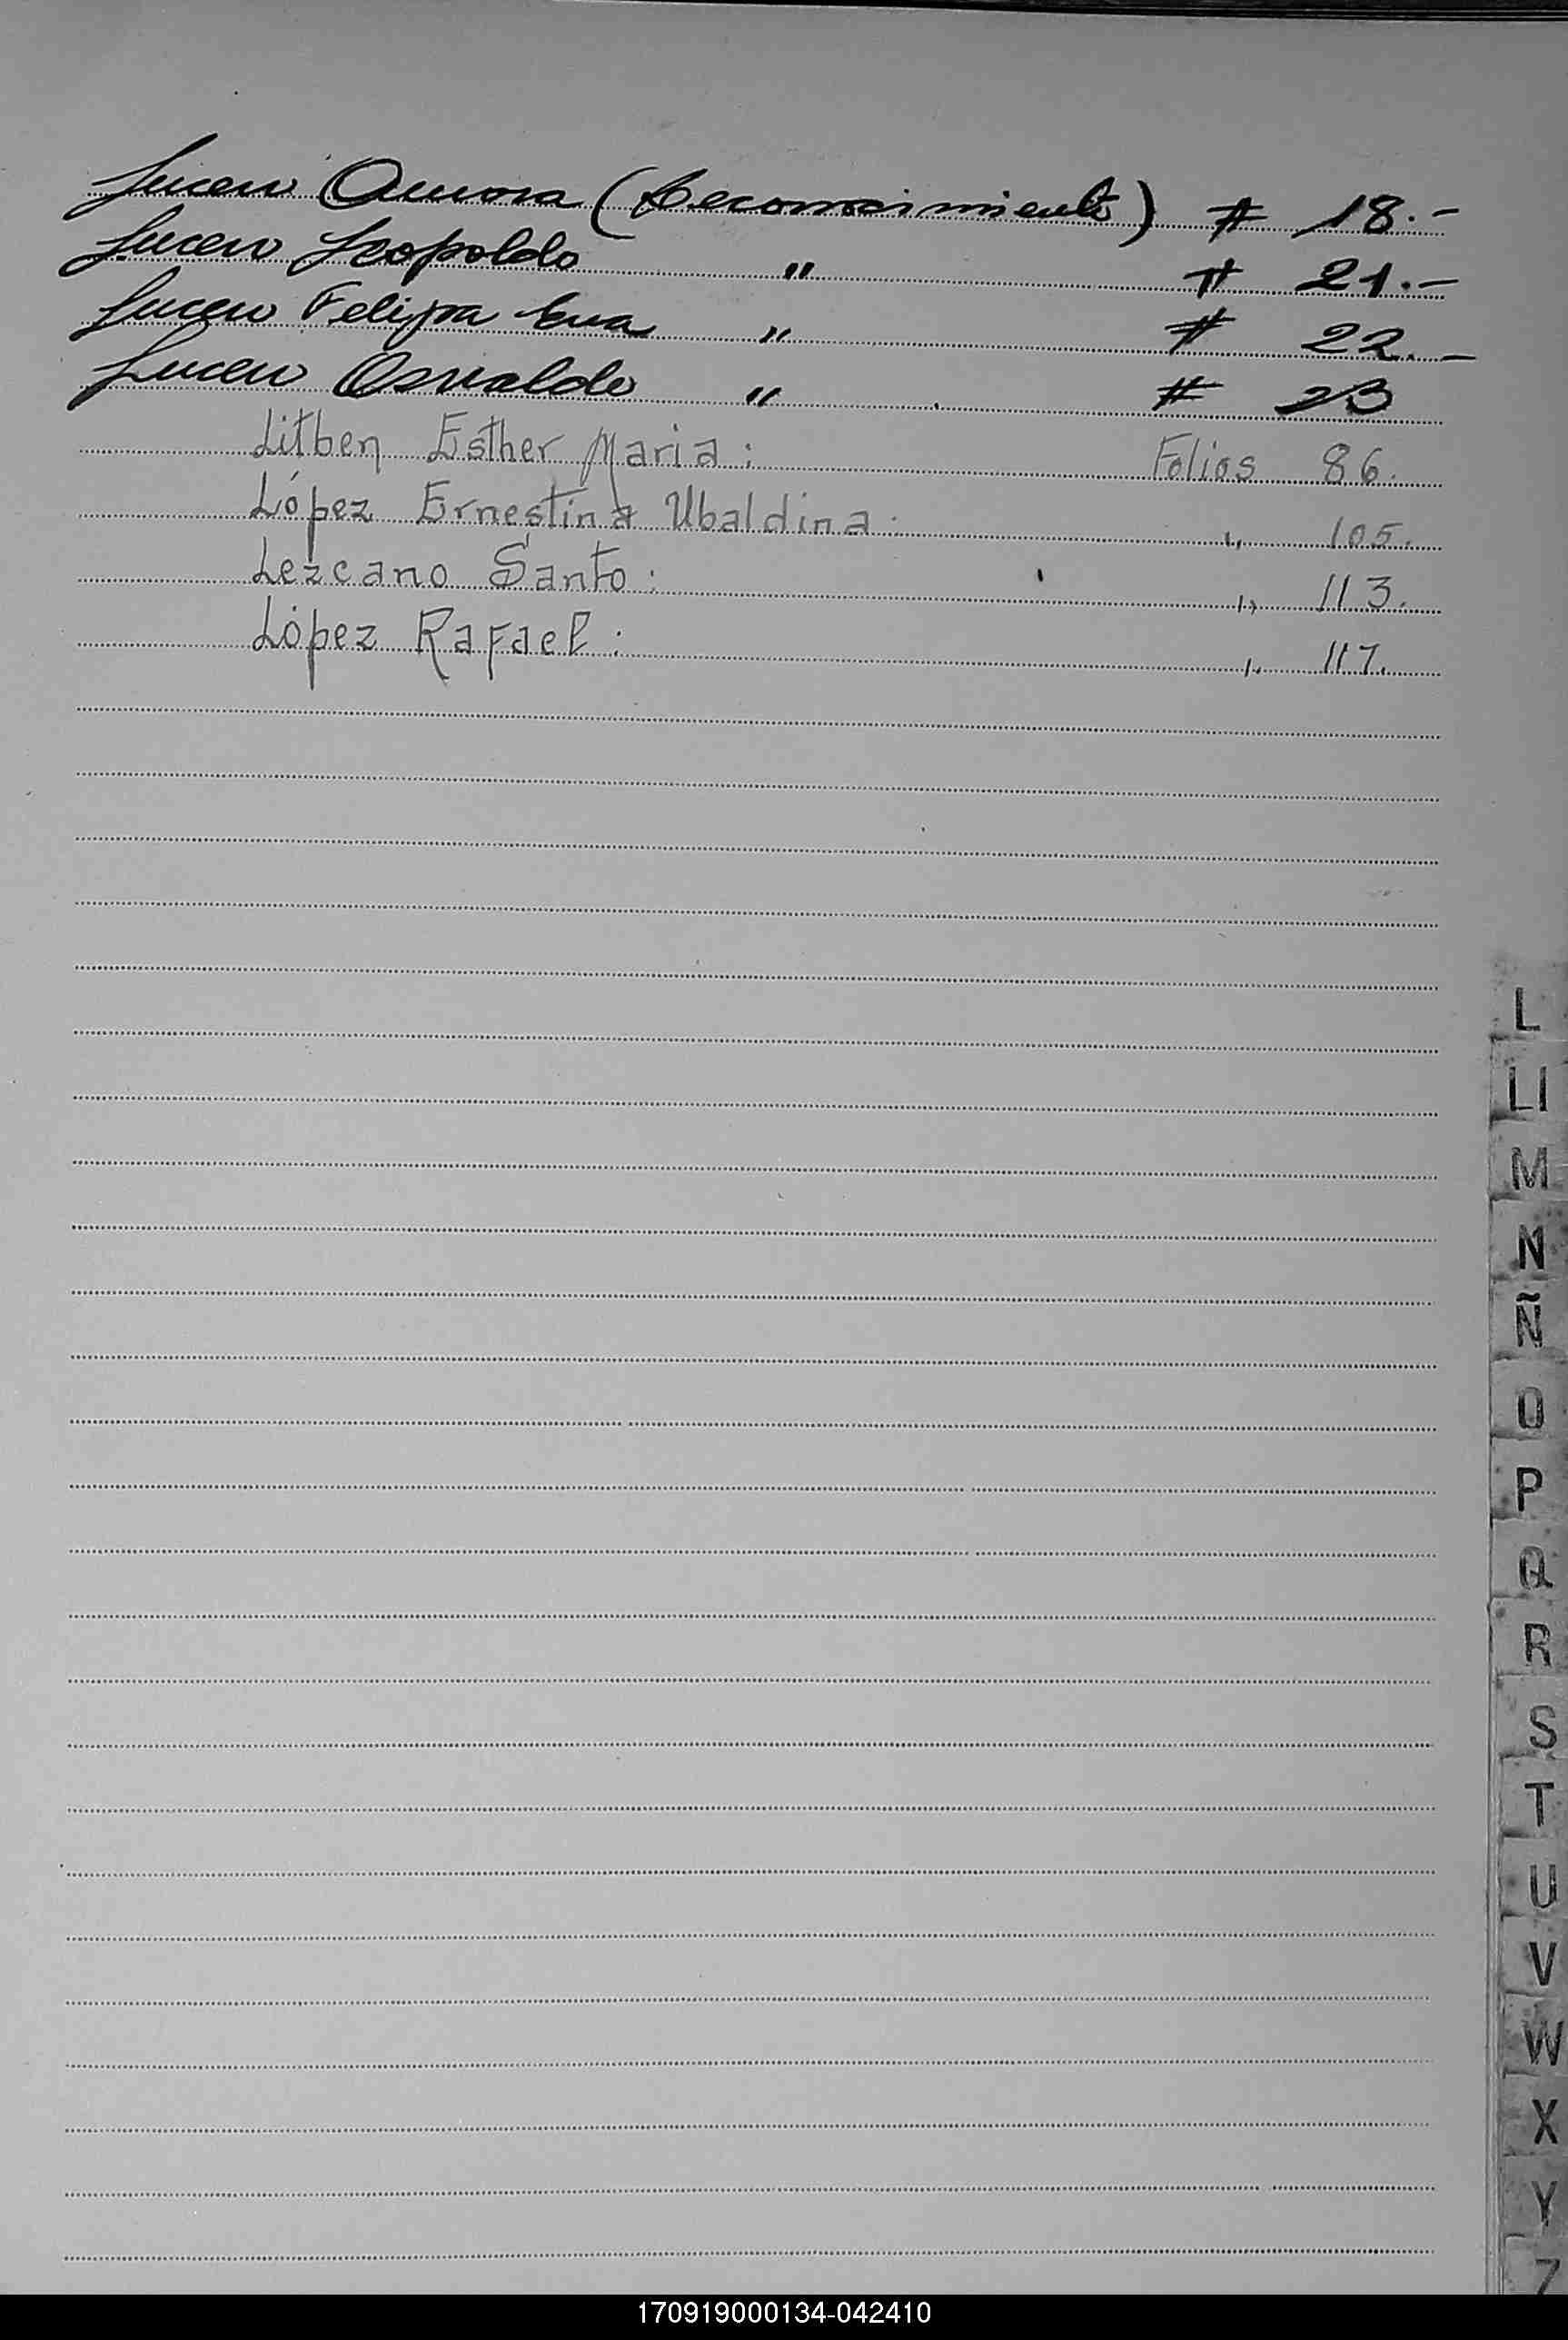 Lucero Aurora (Reconocimiento) # 18.-
Lucero Leopoldo " # 21.-
Lucero Felipa Eva " # 22.-
Lucero Osvaldo " # 23
Litben Esther Maria: Folios 86.
López Ernestina Ubaldina: ,, 105.
Lezcano Santo: ,, 113.
López Rafael: ,, 117.
L
Ll
M
N
Ñ
O
P
Q
R
S
T
U
V
W
X
Y
Z
170919000134-042410